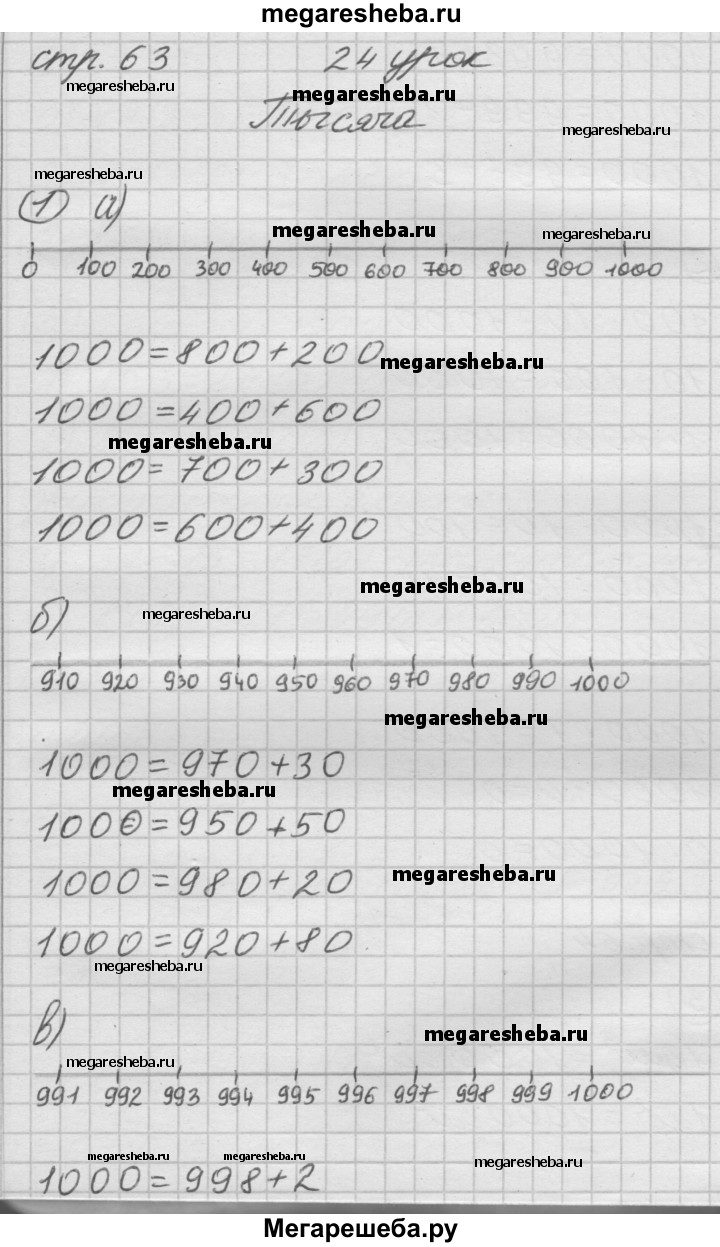 megaresheba.ru
стр. 63 24 урок
megaresheba.ru megaresheba.ru
Тысяча megaresheba.ru
megaresheba.ru
1 а)
megaresheba.ru megaresheba.ru
0 100 200 300 400 500 600 700 800 900 1000
1000=800+200
megaresheba.ru
1000=400+600
megaresheba.ru
1000=700+300
1000=600+400
megaresheba.ru
б) megaresheba.ru
910 920 930 940 950 960 970 980 990 1000
megaresheba.ru
1000=970+30
megaresheba.ru
1000=950+50
1000=980+20 megaresheba.ru
1000=920+80
megaresheba.ru
в) megaresheba.ru
megaresheba.ru
991 992 993 994 995 996 997 998 999 1000
megaresheba.ru megaresheba.ru megaresheba.ru
1000=998+2
Мегарешеба.ру